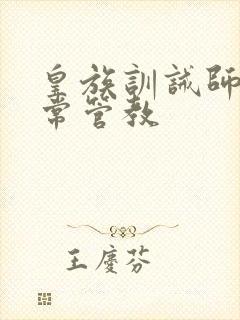 皇族訓誡師
常管教
王慶芬